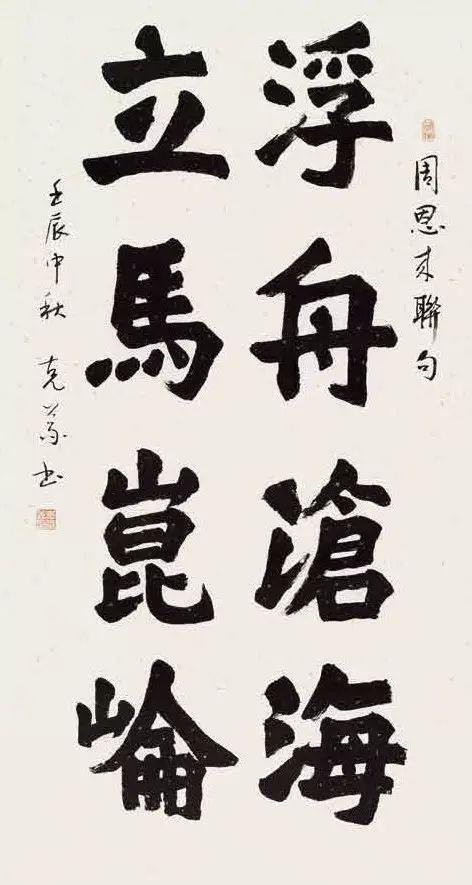 周恩来聯句
浮舟滄海
立馬崑崘
壬辰中秋 克书